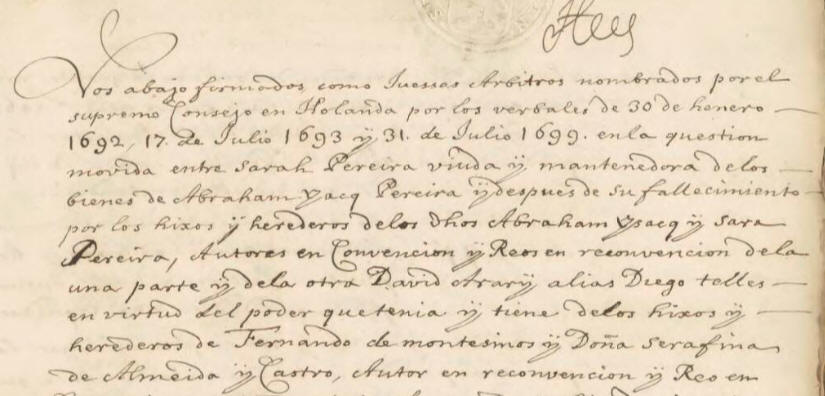 Nos abajo firmados como Iuessas Arbitros nombrados por el
supremo Consejo en Holanda por los verbales de 30 de henero
1692, 17. de Julio 1693 ÿ 31. de Julio 1699. en la question
movida entre Sarah Pereira viuda ÿ mantenedora de los
bienes de Abraham ysacq Pereira ÿ despues de su fallecimiento
por los hixos ÿ herederos delos dhos Abraham ysacq ÿ Sara
Pereira, Autores en Convencion ÿ Reos en reconvencion dela
una parte ÿ dela otra David Ararÿ alias Diego telles
en virtud del poder que tenia ÿ tiene delos hixos ÿ
herederos de Fernando de montesinos ÿ Doña Serafina
de Almeida ÿ Castro, Autor en reconvencion ÿ Reo en